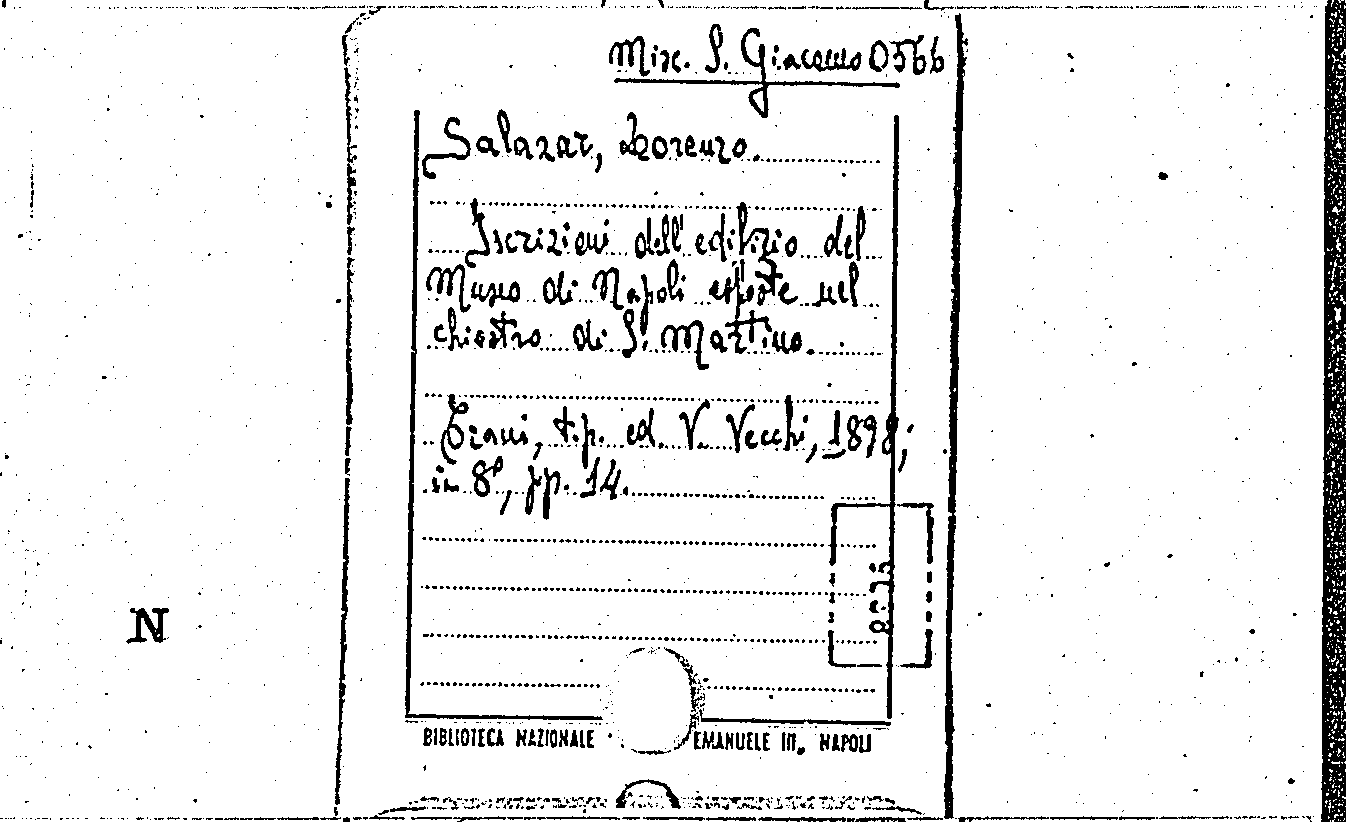 Misc. S. Giacomo 0566
Salazar, Lorenzo.
Iscrizioni dell'edifizio del
Museo di Napoli esposte nel
chiostro di S. Martino.
Trani, tip. ed. V. Vecchi, 1898;
in 8º, pp. 14.
N
BIBLIOTECA NAZIONALE EMANUELE III. NAPOLI